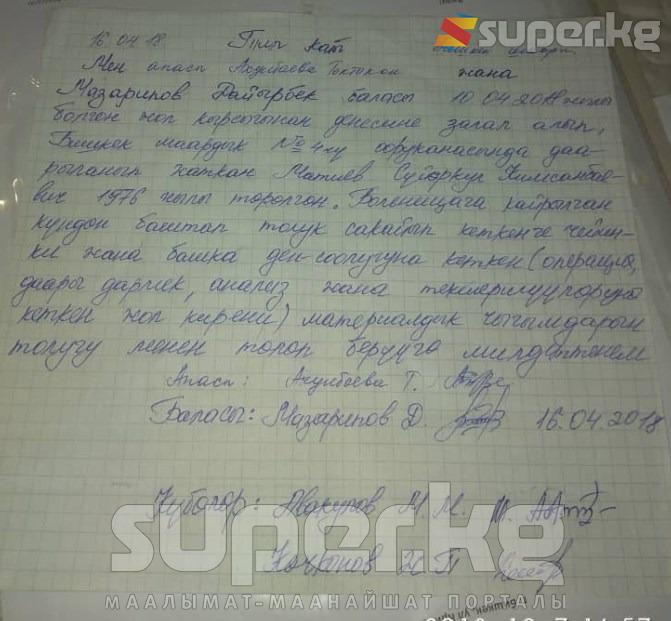 super.kg
16.04.18 Тил кат
Мен апасы Акунбаева Токтокан жана
Мазарипов Дайырбек баласы 10.04.2018 жылы
болгон жол кырсыгынан денесине залал алып,
Бишкек шаардык №4-чу оорукансында даа-
рыланып жаткан Матиев Суйоркул
вич 1976 жылы торолгон. Больницага кайрылган
кундон баштап толук сакайып кеткенге чейин-
ки жана башка ден-соолугуна кеткен (операция,
даары дармек, анализ жана текшерилуулоруно
кеткен жол кирени) материалдык чыгымдарын
толугу менен толоп берууго милдеттенем
Апасы: Акунбаева Т.
Баласы: Мазарипов Д. 16.04.2018
Куболор: М. М.
super.kg
Ж. П
МААЛЫМАТ-МААНАЙШАТ ПОРТАЛЫ